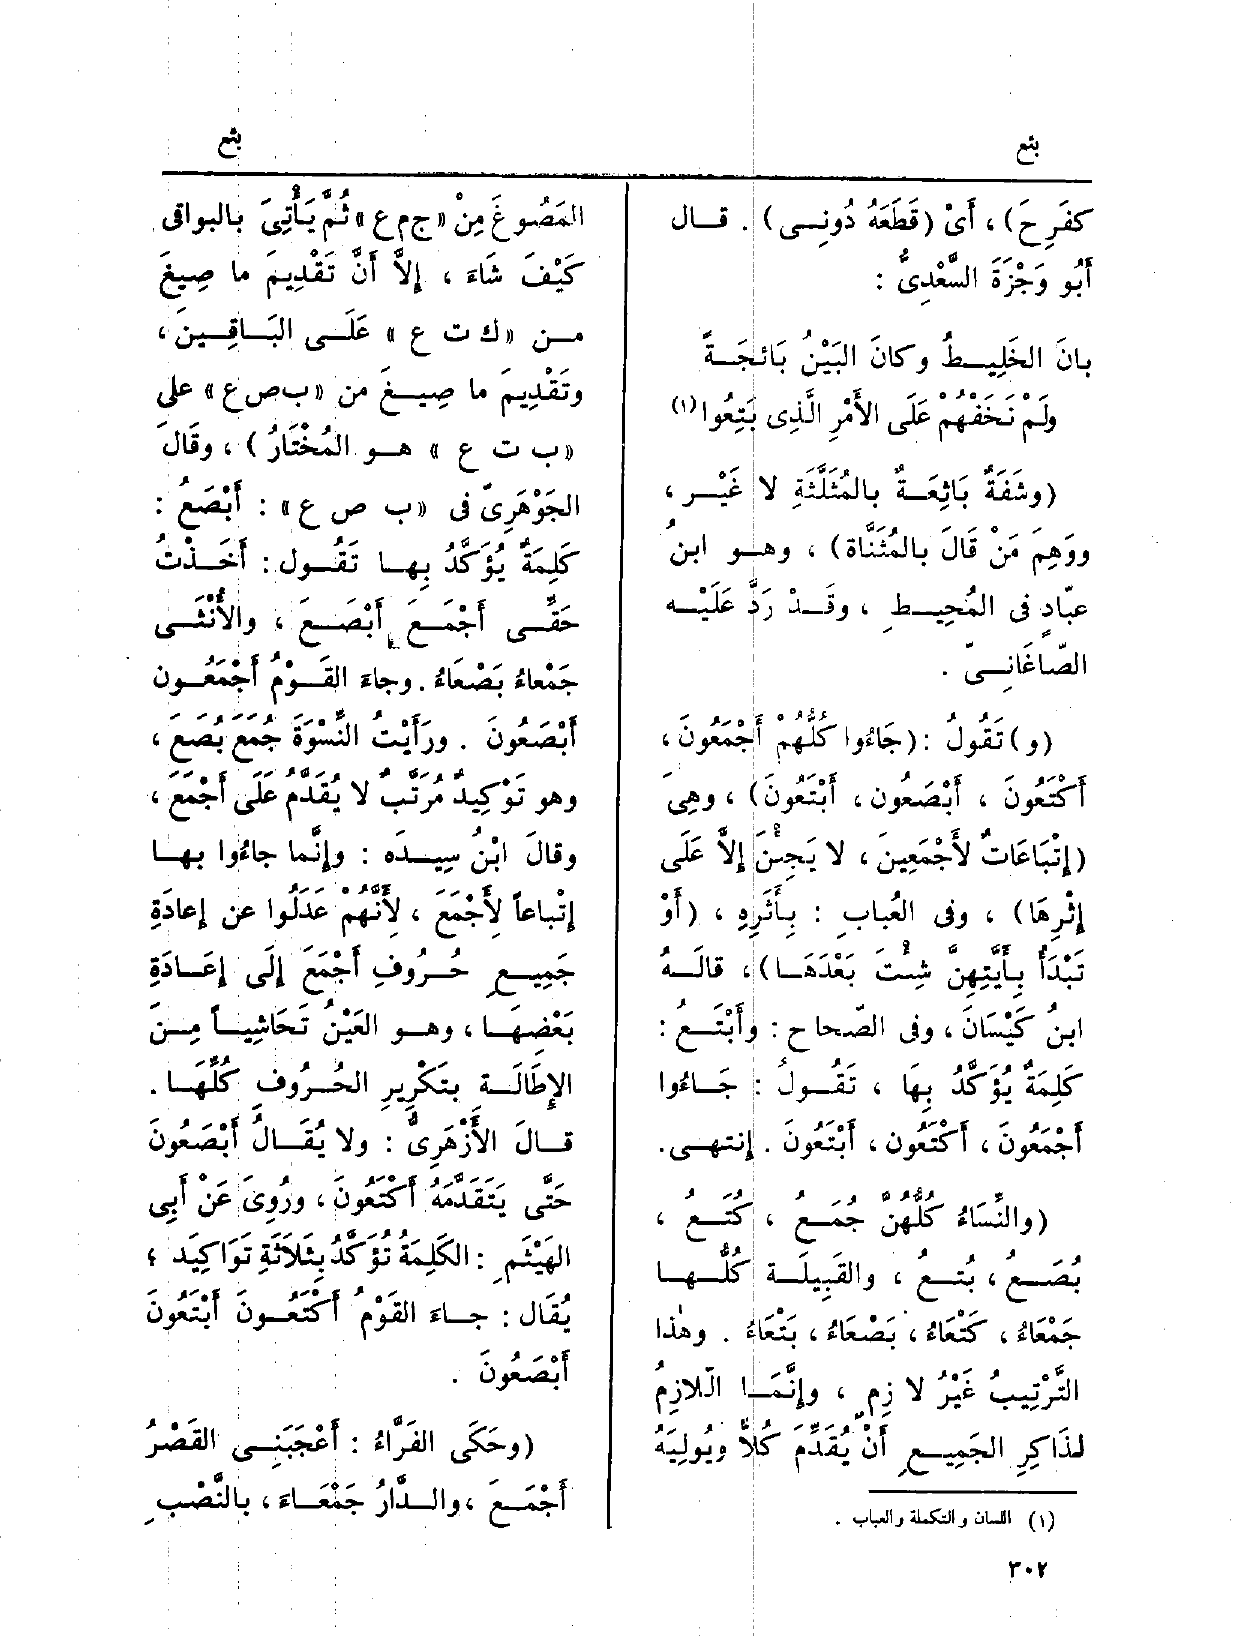 بثع
بثع
كفَرِحَ) ، أَىْ (قَطَعَهُ دُونِـى) . قـال
أَبُو وَجْزَةَ السَّعْدِىُّ :
بانَ الخَلِيـطُ وكانَ البَيْنُ بَائجَـةً
ولَمْ نَخَفْهُم عَلَى الأَمْرِ الَّذِى بَتِعُوا(١)
(وشَفَةٌ بَاثِعَـةٌ بالمُثَلَّثَةِ لا غَيْـر ،
ووَهِمَ مَنْ قَالَ بالمُثَنَّاة) ، وهـو ابنُ
عبّادٍ فى المُحِيـطِ ، وقَـدْ رَدَّ عَلَيْـه
الصّاغَانِـىّ .
(و) تَقُولُ : (جَاءُوا كُلُّهُمْ أَجْمَعُونَ ،
أَكْتَعُونَ ، أَبْصَعُون ، أَبْتَعُونَ) ، وهِىَ
(إِتْبَاعَاتٌ لأَجْمَعِينَ ، لا يَجِئْنَ إِلاَّ عَلَى
إِثْرِهَا) ، وفى العُبابِ : بِأَثَرِهِ ، (أَوْ
تَبْدَأُ بِأَيَّتِهِنَّ شِئْتَ بَعْدَهَـا) ، قالَـهُ
ابنُ كَيْسَانَ ، وفى الصّحاح : وأَبْتَـعُ :
كَلِمَةٌ يُؤَكَّدُ بِهَا ، تَقُـولُ : جَـاءُوا
أَجْمَعُونَ ، أَكْتَعُون ، أَبْتَعُونَ . انتهـى.
(والنِّسَاءُ كُلُّهُنَّ جُمَـعُ ، كُتَـعُ ،
بُصَـعُ ، بُتَـعُ ، والقَبِيلَـة كُلُّـهـا
جَمْعَاءُ ، كَتْعَاءُ ، بَصْعَاءُ ، بَتْعَاءُ . وهٰذا
التَّرْتِيبُ غَيْرُ لازِمٍ ، وإِنَّمَـا الّلازِمُ
لذَاكِرِ الجَمِيـعِ أَنْ يُقَدِّمَ كُلاًّ ويُولِيَهُ
(١) اللسان والتكملة والعباب .
المَصُوغَ مِنْ «ج م ع» ثُمَّ يَأْتِىَ بالبواقى
كَيْفَ شَاءَ ، إِلاَّ أَنَّ تَقْدِيمَ ما صِيغَ
مـن «ك ت ع» عَلَـى البَـاقِـينَ ،
وتَقْدِيمَ ما صِيـغَ من «ب ص ع» على
«ب ت ع» هـو المُخْتَارُ) ، وقَالَ
الجَوْهَرِىّ فى «ب ص ع» : أَبْصَعُ :
كَلِمَةٌ يُؤَكَّدُ بِهـا تَقُـول : أَخَـذْتُ
حَقِّـى أَجْمَـعَ أَبْصَـعَ ، والأُنْثَـى
جَمْعاءُ بَصْعَاءُ . وجاءَ القَـوْمُ أَجْمَعُـون
أَبْصَعُونَ . ورَأَيْتُ النِّسْوَةَ جُمَعَ بُصَعَ ،
وهو تَوْكِيدٌ مُرَتَّبٌ لا يُقَدَّمُ عَلَى أَجْمَعَ ،
وقالَ ابْنُ سِيـدَه : وإِنَّما جاءُوا بهـا
إِتْباعاً لأَجْمَعَ ، لأَنَّهُم عَدَلُوا عن إِعادَةِ
جَمِيـعِ حُـرُوفِ أَجْمَعَ إِلَى إِعَـادَةِ
بَعْضِهَـا ، وهـو العَيْنُ تَحَاشِيـاً مِـنَ
الإِطَالَـةِ بتَكْرِيرِ الحُـرُوفِ كُلِّهَـا .
قـالَ الأَزْهَرِىُّ : ولا يُقَـالُ أَبْصَعُونَ
حَتَّى يَتَقَدَّمَهُ أَكْتَعُونَ ، ورُوِىَ عَنْ أَبِى
الهَيْثَمِ : الكَلِمَةُ تُؤَكَّدُ بِثَلاَثَةِ تَوَاكِيدَ ؛
يُقَال : جـاءَ القَوْمُ أَكْتَعُـونَ أَبْتَعُونَ
أَبْصَعُونَ .
(وحَكَى الفَرَّاءُ : أَعْجَبَنِـى القَصْرُ
أَجْمَـعَ ، والـدَّارُ جَمْعَـاءَ ، بالنَّصْبِ
٣٠٢